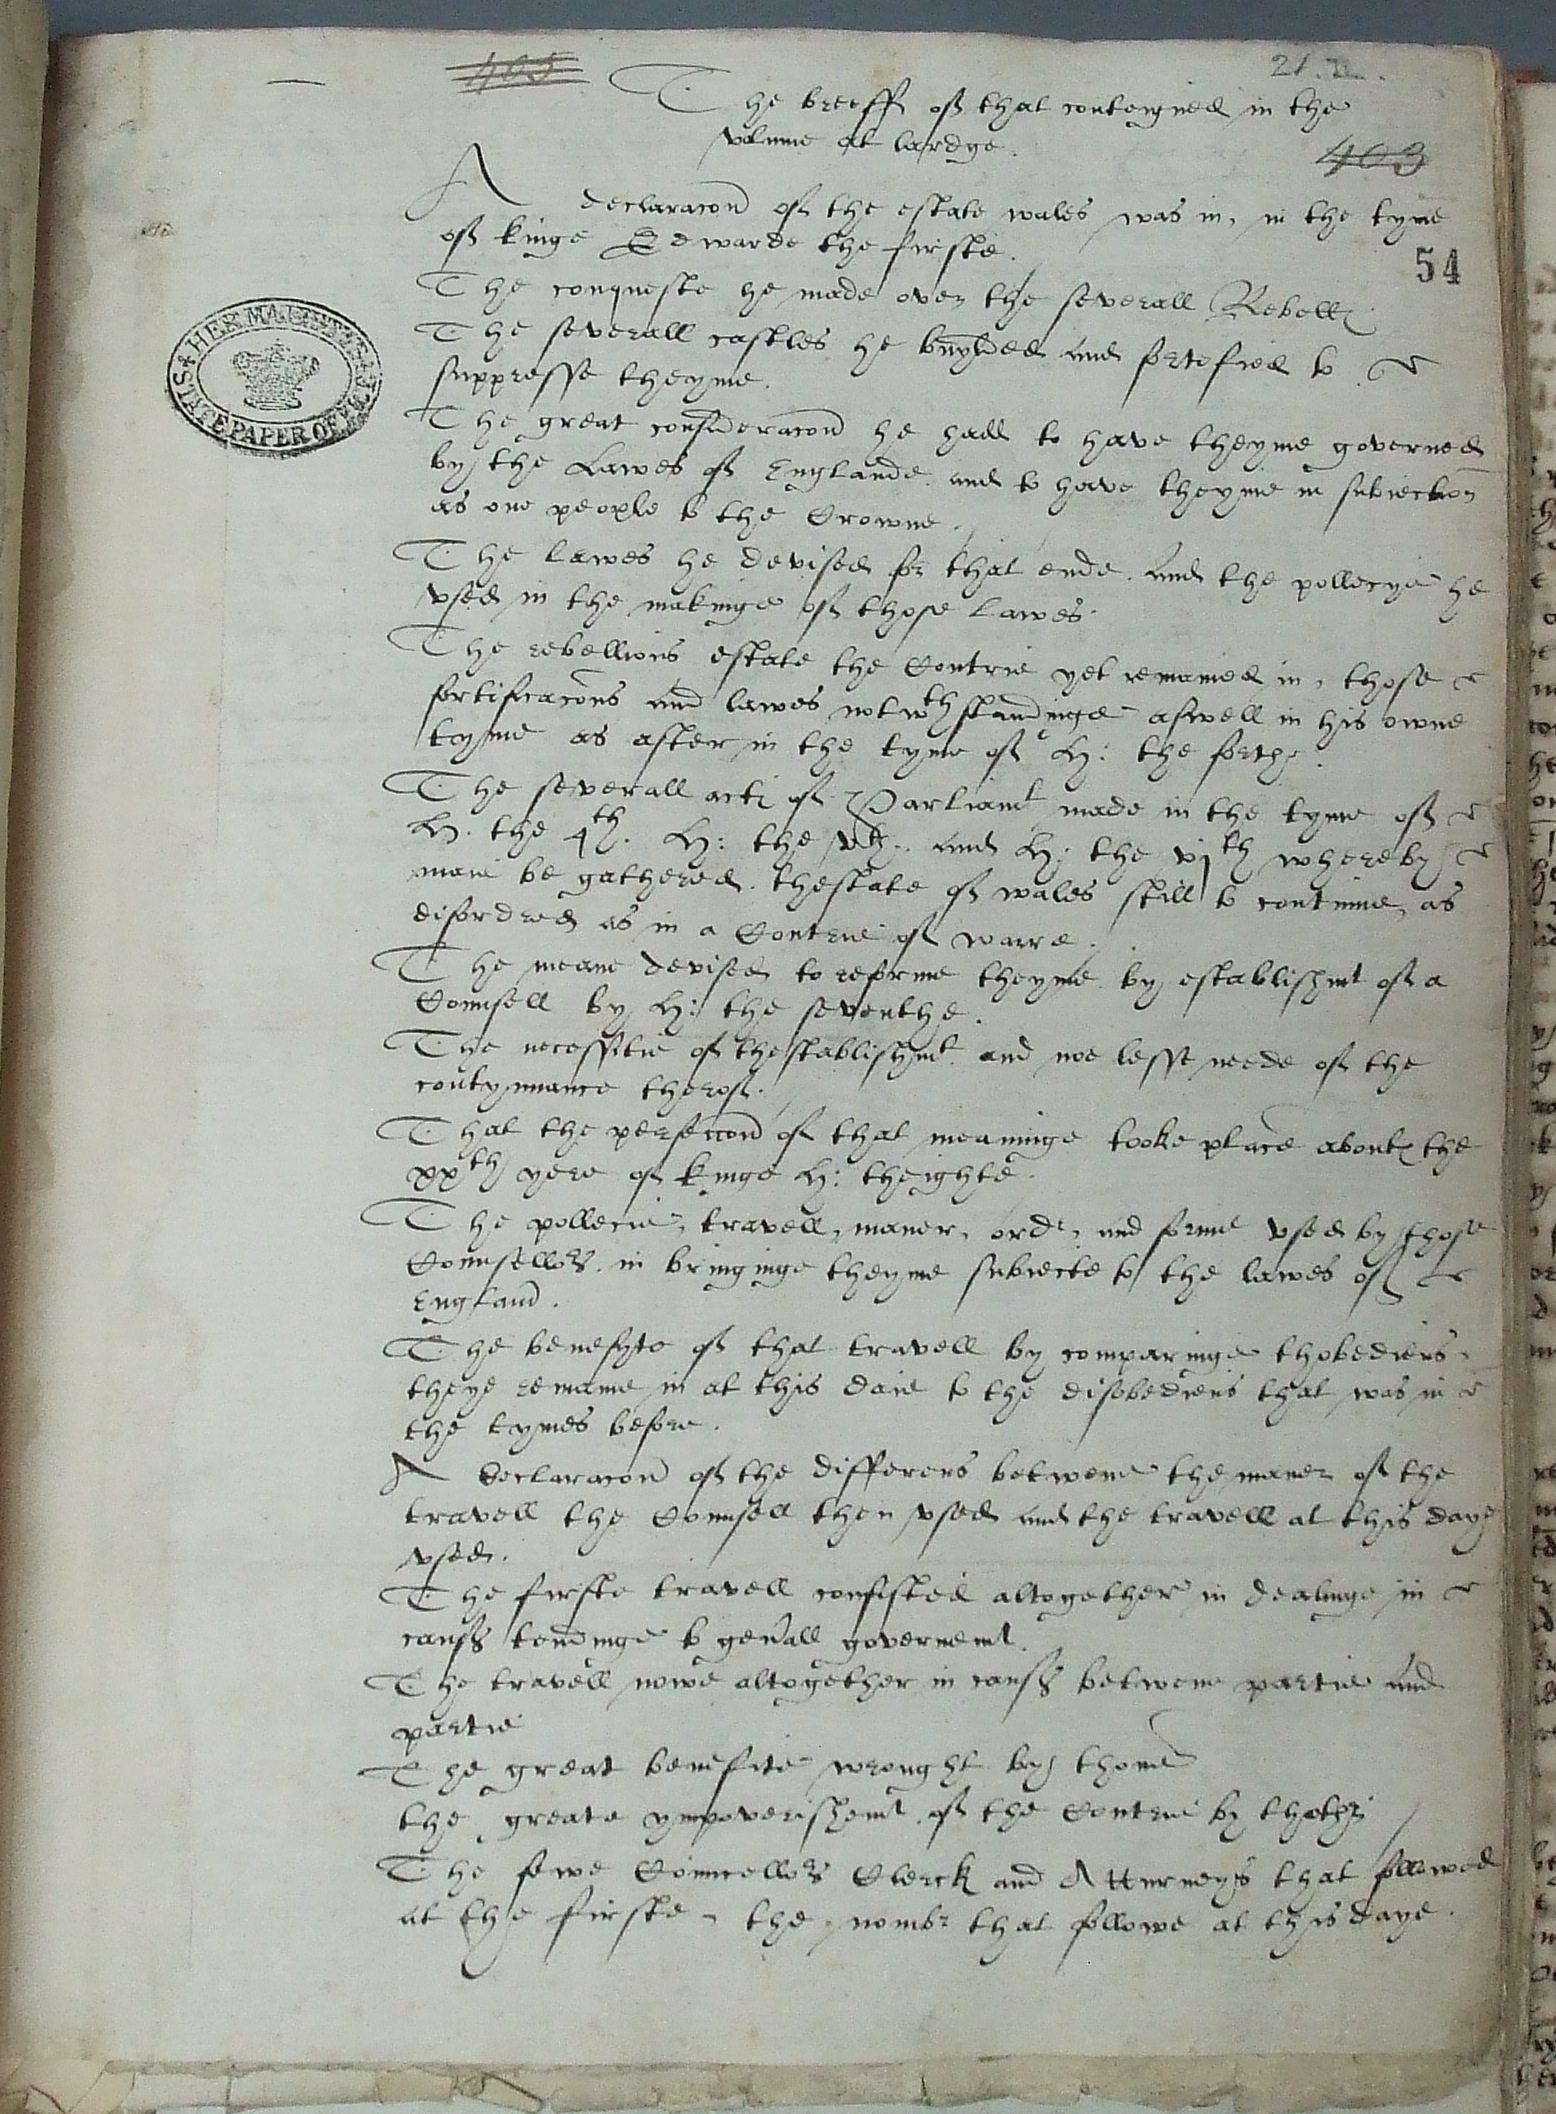 405
21. 
The breeff off that conteigned in the
volume at lardge.
403
A declaracon off the estate wales was in, in the tyme
off kinge Edwarde the firste.
54
The conqueste he made over the severall Rebells
The severall castles he buylded and fortefied to
suppresse theyme.
HER MAJESTY'S STATE PAPER OFFICE
The great consideracon he hadd to have theyme governed
by the Lawes off Englande and to have theyme in subiection
as one people to the Crowne.
The lawes he devised for that ende. and the pollecye he
vsed in the makinge off those lawes.
The rebellious estate the Contrie yet remained in, those
fortificacons and lawes notwthstandinge aswell in his owne
tyme as after in the tyme off H: the forthe.
The severall acts off Parliamt made in the tyme off
H. the 4th. H: the vth. and H: the vjth whereby
maie be gathered. thestate off wales still to contynue, as
disordred as in a Contrie off warre.
The meane devised to reforme theyme by establishmt off a
Counsell by H: the seventhe.
The necessitie off thestablishmt. and noe lesse neede off the
contynuance theroff.
That the perfeccon off that meaninge tooke place aboute the
xxth yere off kinge H: theighte.
The pollecie, travell, maner, ordr, and forme vsed by those
Counsellors. in bringinge theyme subiecte to the lawes off
England.
The benefyte off that travell by comparinge thobediens
theye remaine in at this daie to the disobediens that was in
the tymes before.
A declaracon off the differens betwene the maner off the
travell the Counsell then vsed and the travell at this daye
vsed.
The firste travell consisted altogether in dealinge in
causs tendinge to gen'all governemt.
The travell nowe altogether in causs betwene partie and
partie
The great benefite wrought by thone
the greate ympoverishemt. off the Contrie by thother
The fewe Councellors Clerck and Atturneys that followed
at the firste, the nombr that followe at this daye.